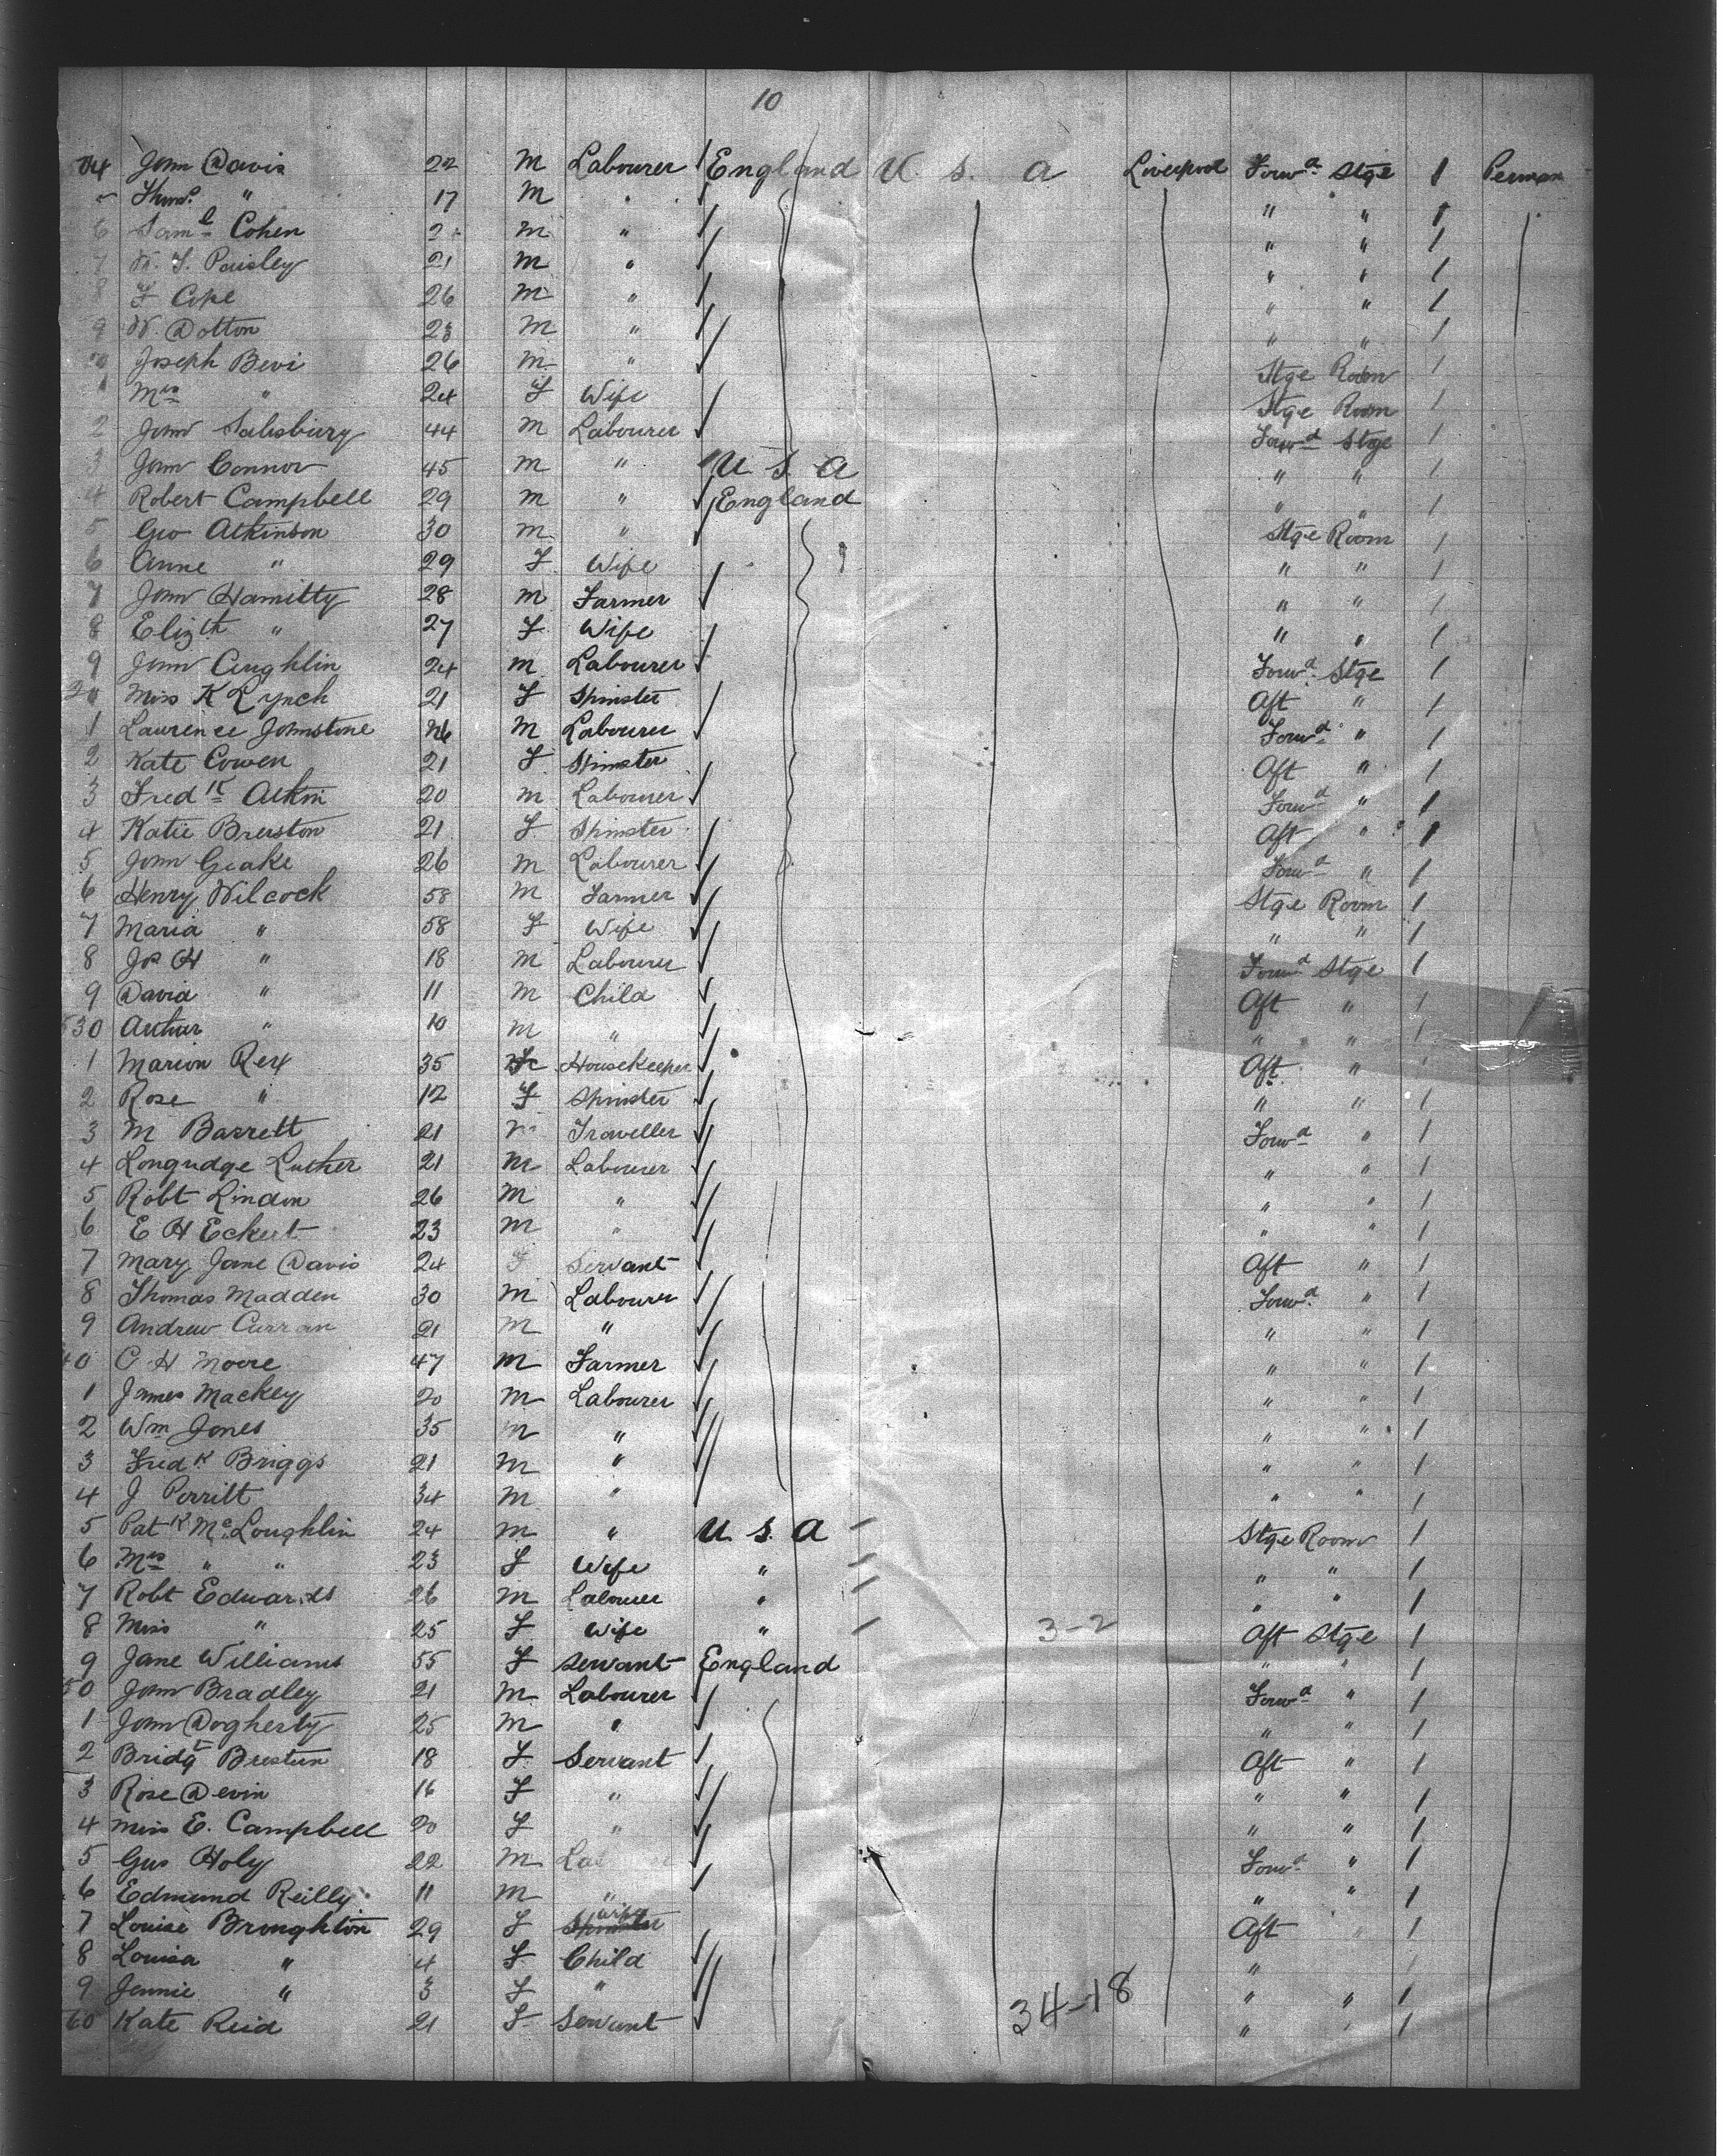 10
04 John Davis 22 M Labourer England U. S. A Liverpool Forwd Stge 1
Thos " 17 M " " " 1
6 Saml Cohen M " " " 1
7 W. Paisley 21 M " " " 1
8 F Cope 26 M " " " 1
9 W. Dotton 23 M " " " 1
Joseph Bevi 26 M " Stge Room 1
1 Mrs " 24 F Wife Stge Room 1
2 John Salisbury 44 M Labourer Forwd Stge 1
3 John Connor 45 M " U S A " " 1
4 Robert Campbell 29 M " England " " 1
5 Geo Atkinson 30 M " Stge Room 1
6 Anne " 29 F Wife " " 1
7 John Hamitty 28 M Farmer " " 1
8 Elizth " 27 F Wife " " 1
9 John Coughlin 24 M Labourer Forwd Stge 1
20 Miss K Lynch 21 F Spinster Aft " 1
1 Laurence Johnstone 26 M Labourer Forwd " 1
2 Kate Cowen 21 F Spinster Aft " 1
3 Fredk Atkin 20 M Labourer Forwd " 1
4 Katie Breiston 21 F Spinster Aft " 1
5 John Geake 26 M Labourer Forwd " 1
6 Henry Wilcock 58 M Farmer Stge Room 1
7 Maria " 58 F Wife " " 1
8 Js H " 18 M Labourer Forwd Stge 1
9 David " 11 M Child Aft " 1
530 Arthur " 10 M " " " 1
1 Marion Rex 35 F Housekeeper Aft "
2 Rose " 12 F Spinster " " 1
3 M Barrett 21 M Traveller Forwd " 1
4 Longudge Luther 21 M Labourer " " 1
5 Robt Lindon 26 M " " " 1
6 E H Eckert 23 M " " " 1
7 Mary Jane Davis 24 F Servant Aft " 1
8 Thomas Madden 30 M Labourer Forwd " 1
9 Andrew Curran 21 M " " " 1
40 C H Moore 47 M Farmer " " 1
1 James Mackey 20 M Labourer " " 1
2 Wm Jones 35 M " " " 1
3 Fredk Briggs 21 M " " " 1
4 J Perritt 34 M " " " 1
5 Patk McLoughlin 24 M " U. S. A Stge Room 1
6 Mrs " " 23 F Wife " " " 1
7 Robt Edwards 26 M Labourer " " " 1
8 Miss " 25 F Wife " 3-2 Aft Stge 1
9 Jane Williams 55 F Servant England " " 1
50 John Bradley 21 M Labourer Forwd " 1
1 John Dogherty 25 M " " " 1
2 Bridgt Brestun 18 F Servant Aft " 1
3 Rose Devin 16 F " " " 1
4 Miss E. Campbell 20 F " " " 1
5 Gus Holy 22 M Lab Forwd " 1
6 Edmund Reilly 11 M " " " 1
7 Louise Broughton 29 F Spinster Wife Aft " 1
8 Louisa " 4 F Child " 1
9 Jennie " 3 F " " " 1
60 Kate Reid 21 F Servant 34-18 " " 1